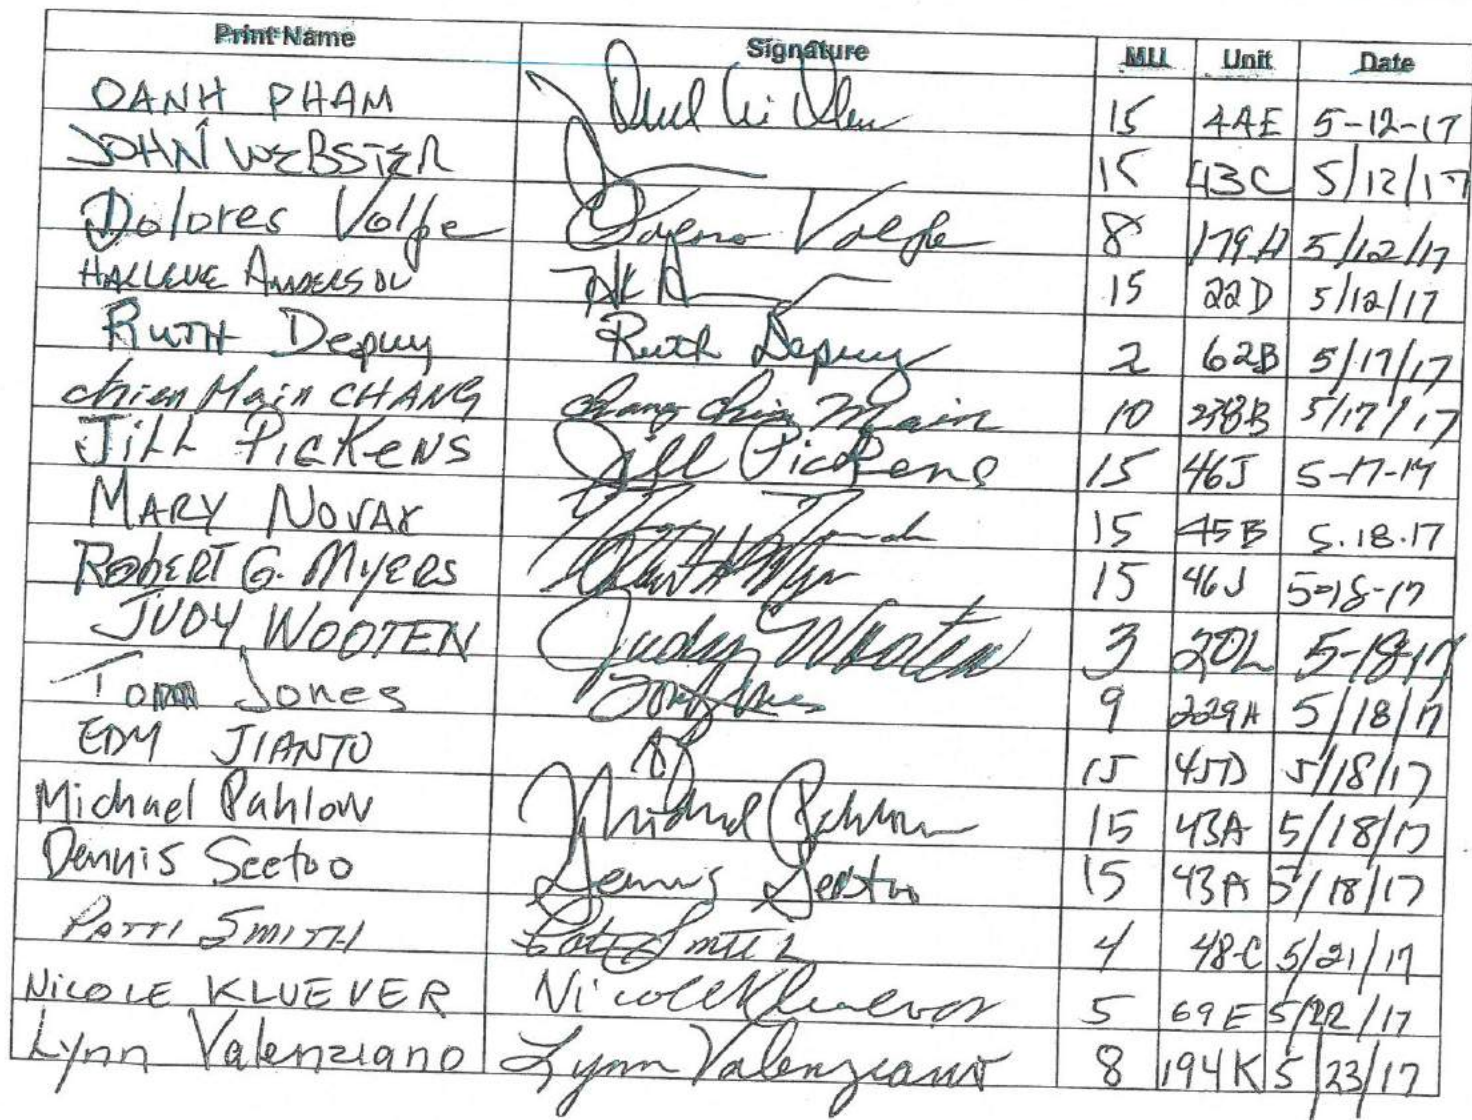 Print Name Signature MU Unit Date
OANH PHAM 15 4AE 5-12-17
JOHN WEBSTER 15 43C 5/12/17
Dolores Volfe Volfe 8 179H 5/12/17
ANDERSON 15 22D 5/12/17
RUTH Depuy Ruth Depuy 2 62B 5/17/17
chien Main CHANG chang chien Main 10 238B 5/17/17
JiLL PicKeNS Jill Pickens 15 46J 5-17-17
MARY NOVAK 15 45B 5.18.17
RobERT G. MyERS 15 46J 5-18-17
JUDY WOOTEN Judy Wooten 3 20L 5-18-17
Tom Jones Tom Jones 9 229A 5/18/17
EDY JIANTO 15 45D 5/18/17
Michael Pahlow Michael Pahlow 15 43A 5/18/17
Dennis Seetoo Dennis Seetoo 15 43A 5/18/17
PATTI SMITH Patti Smith 4 48-C 5/21/17
NICOLE KLUEVER Nicole Kluever 5 69E 5/22/17
Lynn Valenziano Lynn Valenziano 8 194K 5/23/17